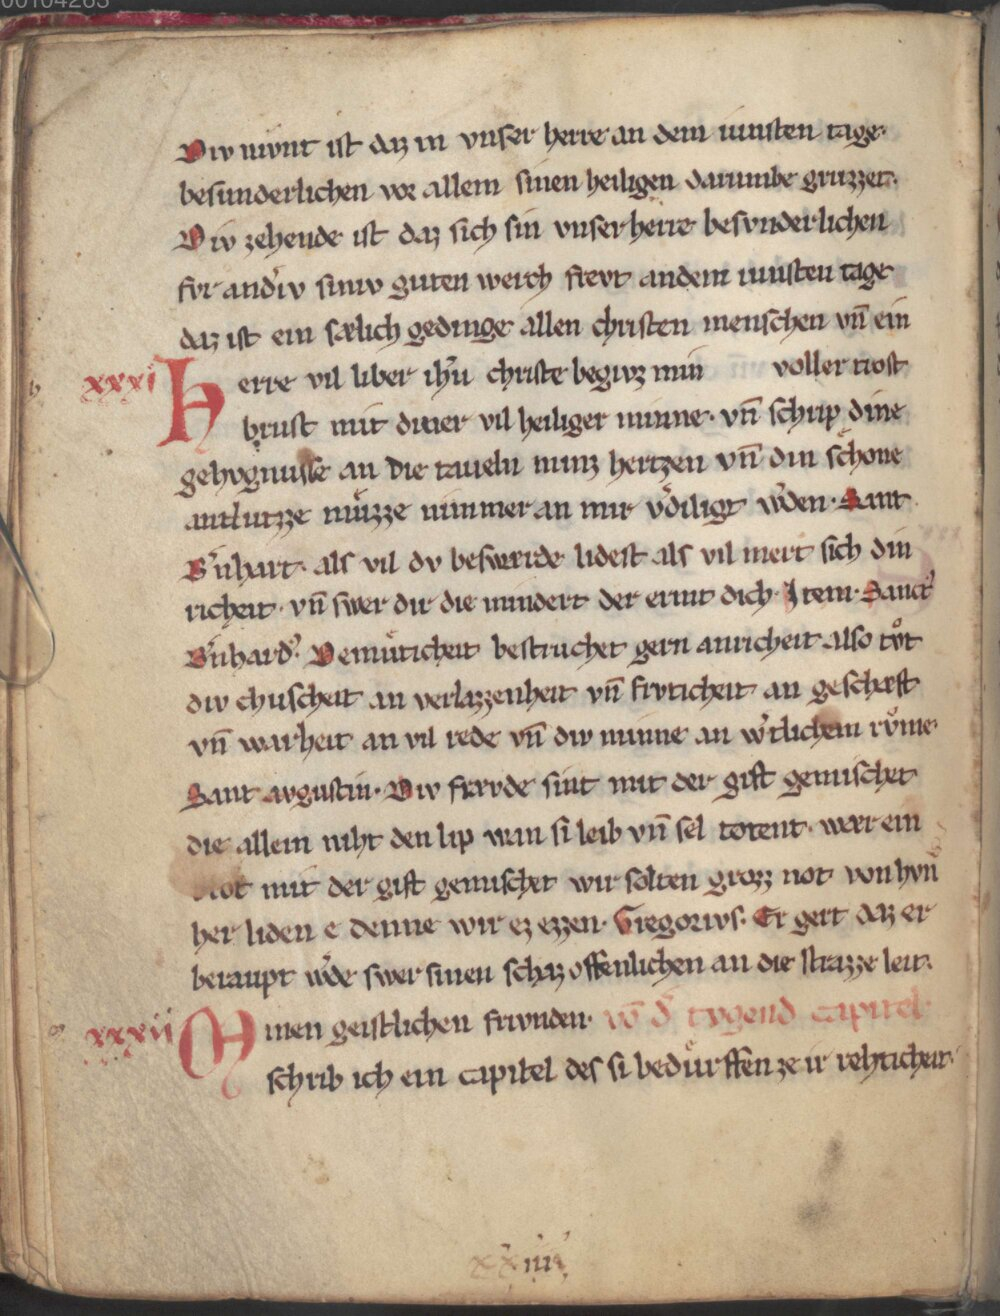 00104263
Div nivnt ist daz in vnser herre an dem iunsten tage·
besunderlichen vor allem sinen heiligen darumbe gruzzet·
Div zehende ist daz sich sin vnser herre besvnderlichen
fvr and͛iv siniv guten werch frevt an dem iunsten tage
daz ist ein sælich gedinge allen christen menschen vn̄ ein
xxxi Herre vil liber ih̄u christe begivz min voller trost
brust mit diner vil heiliger minne· vn̄ schrip dine
gehvgnusse an die taueln minz hertzen vn̄ din schoͤne
antlutzze muͤzze nimmer an mir v͛diligt w͛den· Sant
B͛nhart· als vil dv beswærde lidest als vil mert sich din
richeit· vn̄ swer dir die mindert der ermt dich· Item· Sanct͛
B͛nhard͛· Demuͤticheit bestruchet gern an richeit also tvͦt
div chuscheit an verlazzenheit vn̄ frvticheit an geschæft
vn̄ warheit an vil rede vn̄ div minne an w͛tlichem rvͦme·
Sant avgustin· Div frævde sint mit der gift gemischet
die allein niht den lip wan si leib vn̄ sel totent· wær ein
brot mit der gift gemischet wir solten grozz not von hvn̄
her liden e denne wir ez ezzen· Gregorivs· Er gert daz er
beraupt w͛de swer sinen schaz offenlichen an die strazze leit·
xxxii Minen geistlichen frivnden· vō d͛ tvgend capitel·
schrib ich ein capitel des si beduͤrffen ze ir rehticheit·
xxiiii